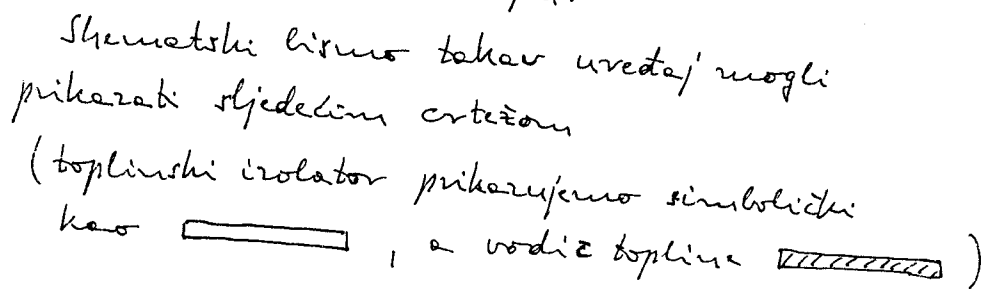 Shematski bismo takav uređaj mogli
prikazati sljedećim crtežom
(toplinski izolator prikazujemo simbolički
kao , a vodič topline )